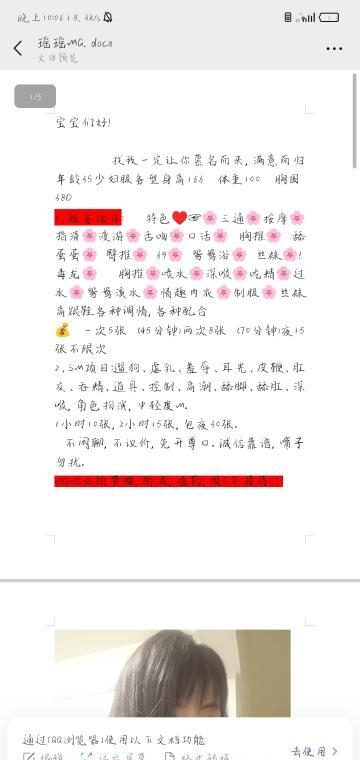 晚上10:06 18.3K/s
瑶瑶MG.docx
文件预览
1/5
宝宝们好!
找我一定让你慕名而来,满意而归
年龄35少妇服务型身高166 体重100 胸围
380
1.服务项目: 特色❤️👉🌸三通🌸按摩🌸
指滑🌸漫游🌸舌吻🌸口活🌸 胸推🌸 舔
蛋蛋🌸 臀推🌸 69🌸 鸳鸯浴🌸 丝袜🌸!
毒龙🌸 胸推🌸喷水🌸深喉🌸吃精🌸过
水🌸鸳鸯戏水🌸情趣内衣🌸制服🌸丝袜
高跟鞋各种调情,各种配合
💰 一次5张 (45分钟)两次8张 (70分钟)夜15
张不限次
2.SM项目遛狗、虐乳、羞辱、耳光、皮鞭、肛
交、吞精、道具、控制、高潮、舔脚、舔肛、深
喉,角色扮演,中轻度M.
1小时10张,2小时15张,包夜30张.
不闲聊,不议价,免开尊口.诚信靠谱,嘴子
勿扰.
通过【QQ浏览器】使用以下文档功能
去使用